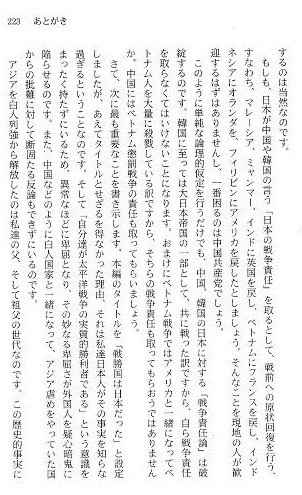 223　あとがき
するのは当然なのです。
　もしも、日本が中国や韓国の言う「日本の戦争責任」を取るとして、戦前への原状回復を行う、
すなわち、マレーシア、ミャンマー、インドに英国を戻し、ベトナムにフランスを戻し、インド
ネシアにオランダを、フィリピンにアメリカを戻したとしましょう。そんなことを現地の人が歓
迎するはずはありませんし、一番困るのは中国共産党でしょう。
　このように単純な論理的仮定を行うだけでも、中国、韓国の日本に対する「戦争責任論」は破
綻するのです。韓国に至っては大日本帝国の一部として、共に戦った訳ですから、自ら戦争責任
を取らなくてはいけないことになります。おまけにベトナム戦争ではアメリカと一緒になってベ
トナム人を大量に殺戮している訳ですから、そちらの戦争責任も取ってもらおうではありません
か。中国にはベトナム懲罰戦争の責任も取ってもらいましょう。
　さて、次に最も重要なことを書き示します。本編のタイトルを「戦勝国は日本だった」と設定
しましたが、あえてタイトルとせざるを得なかった理由、それは私達日本人がその事実を知らな
過ぎるということなのです。そして「自分達が太平洋戦争の実質的勝利者である」という意識を
まったく持たずにいるため、異常なほどに卑屈となり、その妙なる卑屈さが外国人を疑心暗鬼に
陥らせるのです。また、中国などのように白人国家と一緒になって、アジア虐めをやっていた国
からの批難に対して断固たる反論もできずにいるのです。
　アジアを白人列強から解放したのは私達の父、そして祖父の世代なのです。この歴史的事実に